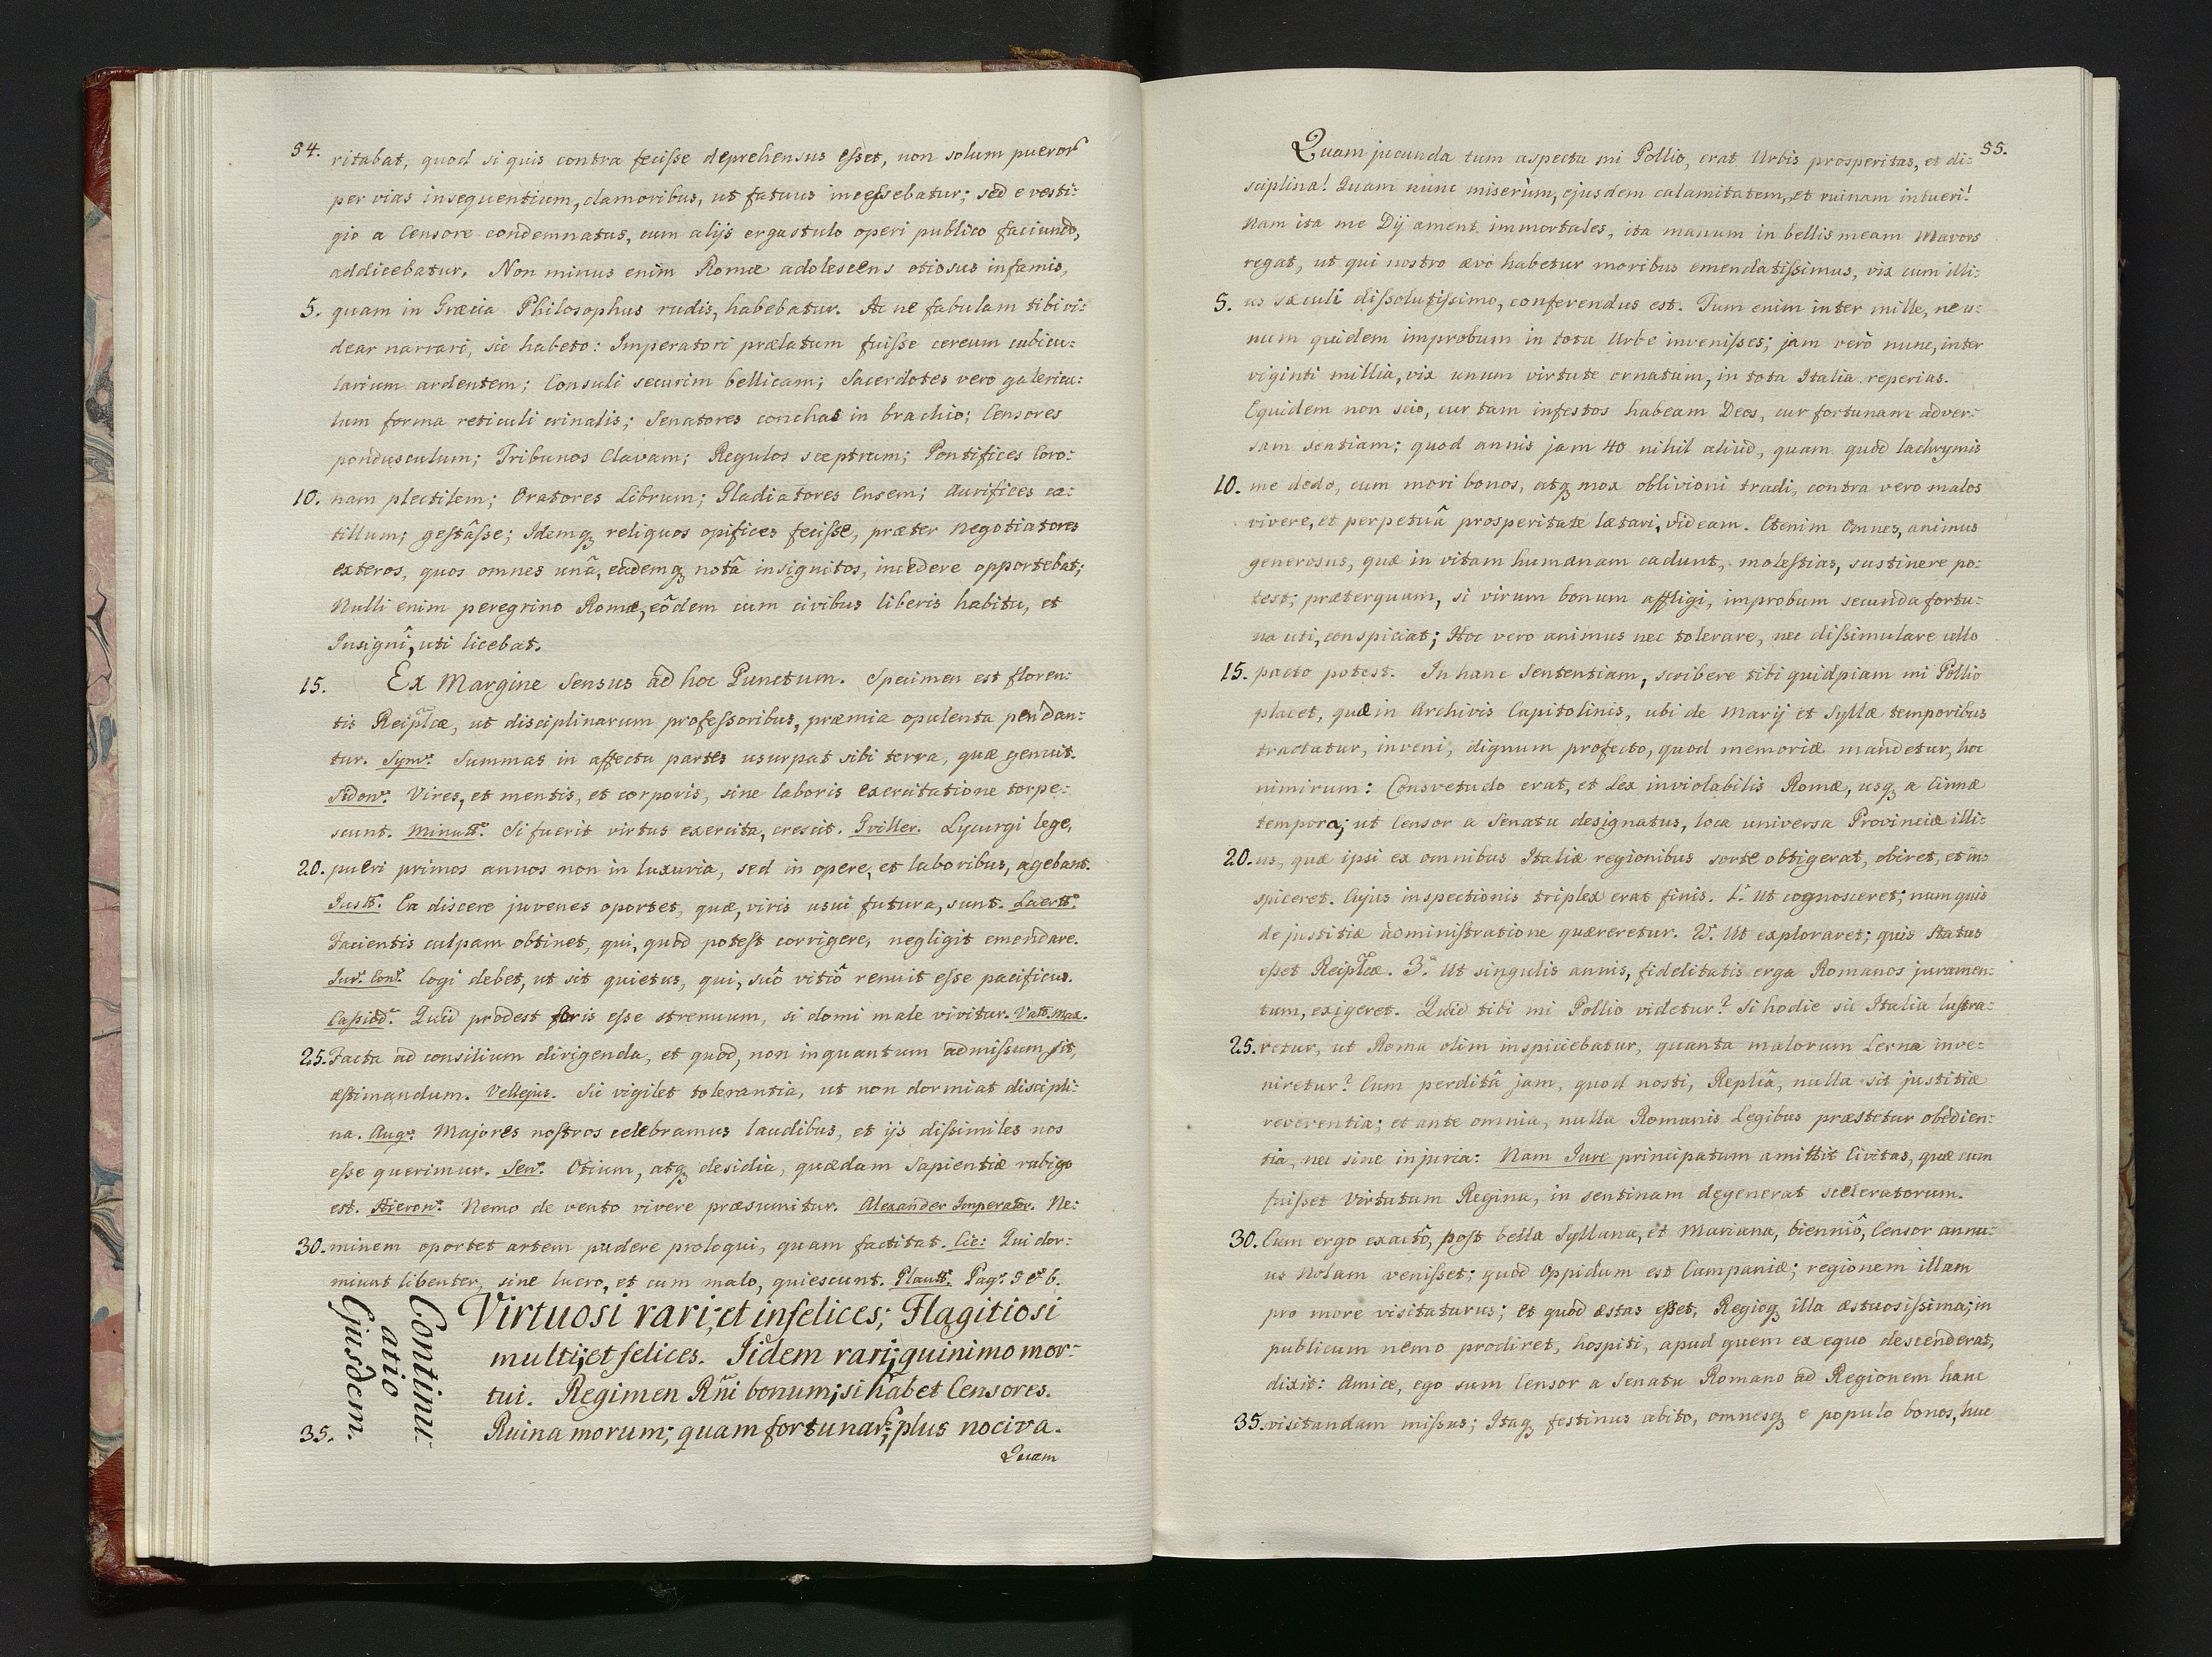 54.
ritabat, quod si quis contra feciſse deprehensus eſset, non solum pueror
per vias insequentium, clamoribus, ut fatuus inceſsebatur; sed e vesti-
gio a Censore condemnatus, cum alijs ergastulo operi publico faciundo,
addicebatur. Non minus enim Romæ adolescens otiosus infamis,
5. quam in Græcia Philosophus rudis, habebatur. Ac ne fabulam tibi vi:
dear narrari, sic habeto: Imperatori prælatum fuiſse cereum cubicu:
larium ardentem; Consuli securim bellicam; Sacerdotes vero galericu:
lum forma reticuli crinalis; Senatores conchas in brachio; Censores
pondusculum; Tribunos Clavam; Regulos sceptrum; Pontifices Coro:
10. nam plectilem; Oratores Librum; Gladiatores Ensem; Aurifices ca:
tillum; geſtâſse; Idemq reliquos opifices feciſse, præter Negotiatores
exteros, quos omnes unâ, eademq notâ insignitos, incedere opportebat;
Nulli enim peregrino Romæ, eôdem cum civibus liberis habitu, et
Insignî, uti licebat.
15. Ex Margine Sensus ad hoc Punctum. Specimen est floren:
tis Reiplcæ, ut disciplinarum profeſsoribus, præmia opulenta pendan:
tur. Sym: Summas in affectu partes usurpat sibi terra, quæ genuit.
Sidon: Vires, et mentis, et corporis, sine laboris exercitatione torpe:
scunt. Minutt: Si fuerit virtus exercita, crescit. Gviller. Lycurgi lege,
20. pueri primos annos non in luxuria, sed in opere, et laboribus, agebant.
Justt: Ea discere juvenes oportet, quæ, viris usui futura, sunt. Laertt:
Facientis culpam obtinet, qui, quod poteſt corrigere, negligit emendare.
Jur: Con: Cogi debet, ut sit quietus, qui, suô vitiô renuit eſse pacificus.
Caſsiod: Quid prodest foris eſse strenuum, si domi male vivitur. Val: Max.
25. Facta ad consilium dirigenda, et quod, non inquantum admiſsum sit,
æſtimandum. Vellejus. Sic vigilet tolerantia, ut non dormiat discipli:
na. Aug: Majores noſtros celebramus laudibus, et ijs diſsimiles nos
eſse querimur. Sen: Otium, atq desidia, quædam Sapientiæ rubigo
est. Hieron: Nemo de vento vivere præsumitur. Alexander Imperator. Ne:
30. minem oportet artem pudere proloqui, quam factitat. Cic: Qui dor:
miunt libenter, sine lucro, et cum malo, quiescunt. Plautt. Pag: 5 et 6.
Continu:
atio
Ejusdem.
Virtuosi rari; et infelices; Flagitiosi
multi; et felices. Iidem rari; quinimo mor:
tui. Regimen Rñi bonum; si habet Censores.
35. Ruina morum; quam fortunar; plus nociva.
Quam
55.
Quam jucunda tum aspectu mi Pollio, erat Urbis prosperitas, et di:
sciplina! Quam nunc miserùm, ejusdem calamitatem, et ruinam intueri!
Nam ita me Dij ament immortales, ita manum in bellis meam Mavors
regat, ut qui nostro ævo habetur moribus emendatiſsimus, vix cum illi:
5. us sæculi diſsolutiſsimo, conferendus est. Tum enim inter mille, ne u:
num quidem improbum in tota Urbe inveniſses; jam verò nunc, inter
viginti millia, vix unum virtute ornatum, in tota Italia reperias.
Equidem non scio, cur tam infestos habeam Deos, cur fortunam adver:
sam sentiam; quod annis jam 40 nihil aliud, quam quod lachrymis
10. me dedo, cum mori bonos, atq mox oblivioni tradi, contra vero malos
vivere, et perpetuâ prosperitate lætari, videam. Etenim Omnes, animus
generosus, quæ in vitam humanam cadunt, moleſtias, sustinere po:
test; præterquam, si virum bonum affligi, improbum secunda fortu:
na uti, conspiciat; Hoc vero animus nec tolerare, nec diſsimulare ullo
15. pacto potest. In hanc Sententiam, scribere tibi quidpiam mi Pollio
placet, quæ in Archivis Capitolinis, ubi de Marij et Syllæ temporibus
tractatur, inveni, dignum profecto, quod memoriæ mandetur, hoc
nimirum: Consvetudo erat, et Lex inviolabilis Romæ, usq a Cinnæ
tempora; ut Censor a Senatu designatus, loca universa Provinciæ illi:
20. us, quæ ipsi ex omnibus Italiæ regionibus sorte obtigerat, obiret, et in:
spiceret. Cujus inspectionis triplex erat finis. 1. Ut cognosceret; num quis
de justitiæ adminiſtratione quæreretur. 2. Ut exploraret; quis Status
eſset Reiplcæ. 3. Ut singulis annis, fidelitatis erga Romanos juramen:
tum, exigeret. Quid tibi mi Pollio videtur? Si hodie sic Italia luſtra:
25. retur, ut Roma olim inspiciebatur, quanta malorum Lerna inve:
niretur? Cum perditâ jam, quod nosti, Repliâ, nulla sit justitiæ
reverentia; et ante omnia, nulla Romanis Legibus præstetur obedien:
tia, nec sine injuria: Nam Jure principatum amittit Civitas, quæ cum
fuiſset Virtutum Regina, in sentinam degenerat sceleratorum.
30. Cum ergo exactô, poſt bella Syllana, et Mariana, bienniô, Censor annu:
us Nolam veniſset; quod Oppidum est Campaniæ; regionem illam
pro more visitaturus; et quod æstas eſset, Regioq illa æstuosiſsima; in
publicum nemo prodiret, hospiti, apud quem ex equo descenderat,
dixit: Amice, ego sum Censor a Senatu Romano ad Regionem hanc
35. visitandam miſsus; Itaq festinus abito, omnesq e populo bonos, huc